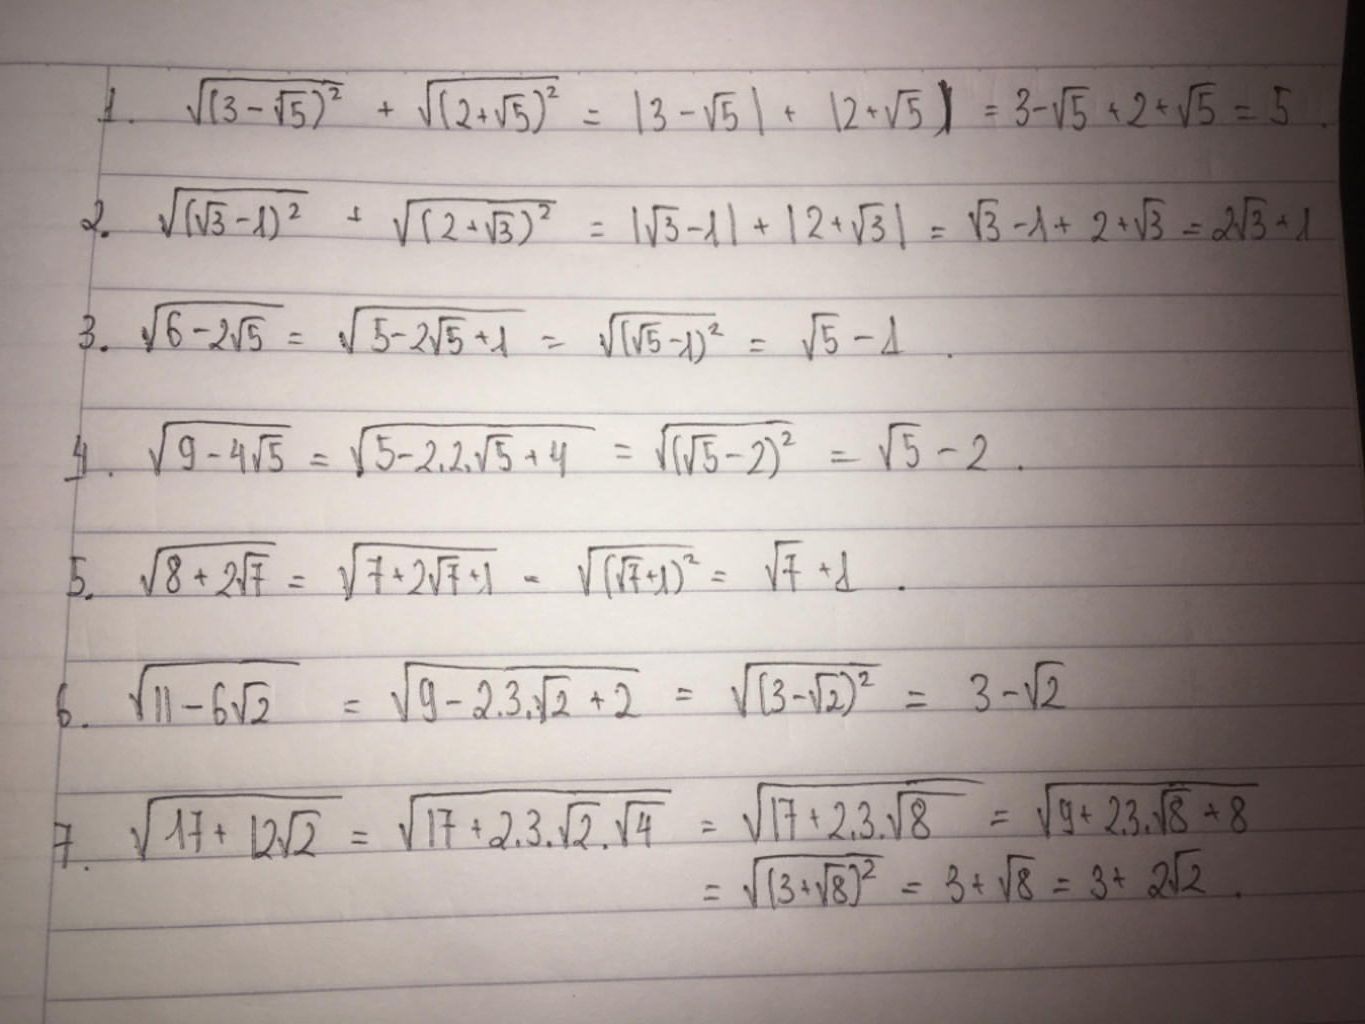 1. √(3-√5)² + √(2+√5)² = |3-√5| + |2+√5| = 3-√5+2+√5 = 5.
2. √(√3-1)² + √(2+√3)² = |√3-1| + |2+√3| = √3-1+2+√3 = 2√3+1
3. √(6-2√5) = √(5-2√5+1) = √(√5-1)² = √5-1.
4. √(9-4√5) = √(5-2.2.√5+4) = √(√5-2)² = √5-2.
5. √(8+2√7) = √(7+2√7+1) = √(√7+1)² = √7+1.
6. √(11-6√2) = √(9-2.3.√2+2) = √(3-√2)² = 3-√2
7. √(17+12√2) = √(17+2.3.√2.√4) = √(17+2.3.√8) = √(9+2.3.√8+8)
= √(3+√8)² = 3+√8 = 3+2√2.